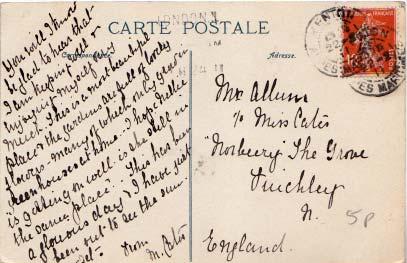 CARTE POSTALE
Correspondance.
Adresse.
LONDON
MENTON
You will I know
be glad to hear that
I am keeping well &
enjoying myself very
much. This is a most beautiful
place & the gardens are full of lovely
flowers - many of which only grow in
greenhouses at home. I hope Nellie
is getting on well - is she still in
the same place? This has been
a glorious day & I have just
been out to see the sun
set.
From
M. Cates
Mr Allum
c/o Miss Cates
"Norbury" The Grove
Finchley
N.
England.
5P